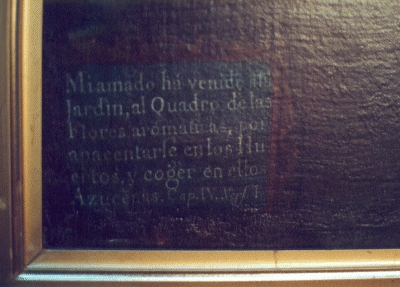 Mi amado há venido a su
Jardin, al Quadro de las
Flores aromaticas, por
apacentarse en los Hu
ertos, y coger en ellos
Azucenas. Cap. IV. Vers. I.